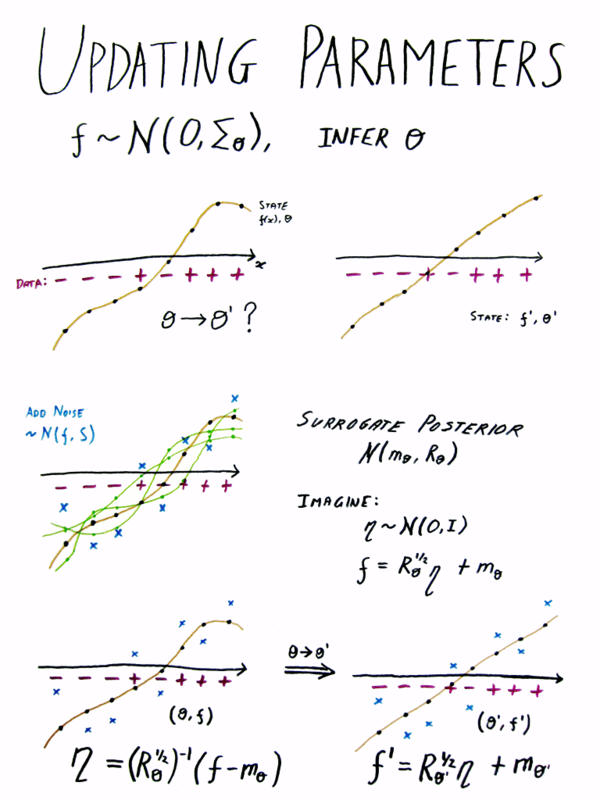 UPDATING PARAMETERS
f ~ N(0, Σθ), INFER θ
STATE
f(x), θ
x
DATA: - - - + - + + +
θ → θ' ?
- - - + - + + +
STATE: f', θ'
ADD NOISE
~ N(f, S)
- - - + - + + +
SURROGATE POSTERIOR
N(mθ, Rθ)
IMAGINE:
η ~ N(0, I)
f = Rθ^½ η + mθ
- - - + - + + +
(θ, f)
η = (Rθ^½)^-1 (f - mθ)
θ → θ'
- - - + - + + +
(θ', f')
f' = Rθ'^½ η + mθ'